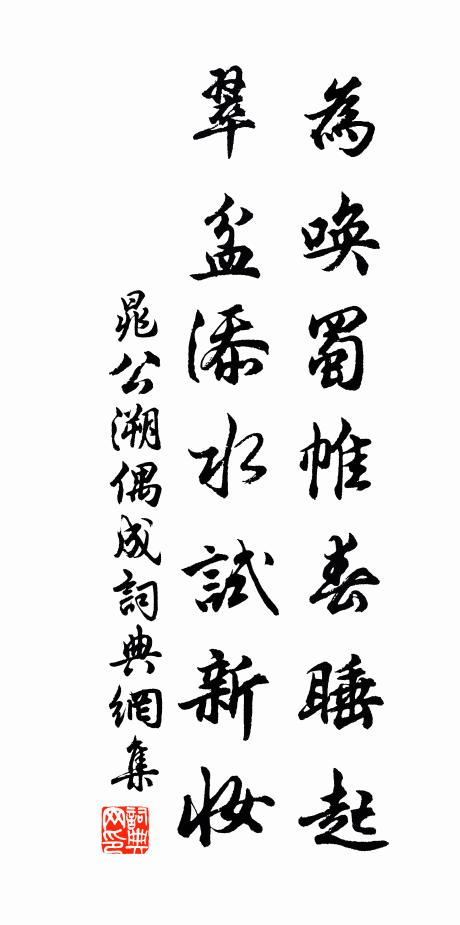 為喚蜀帷春睡起
翠盆添水試新妝
晁公溯偶成詞典網集
詞典網印